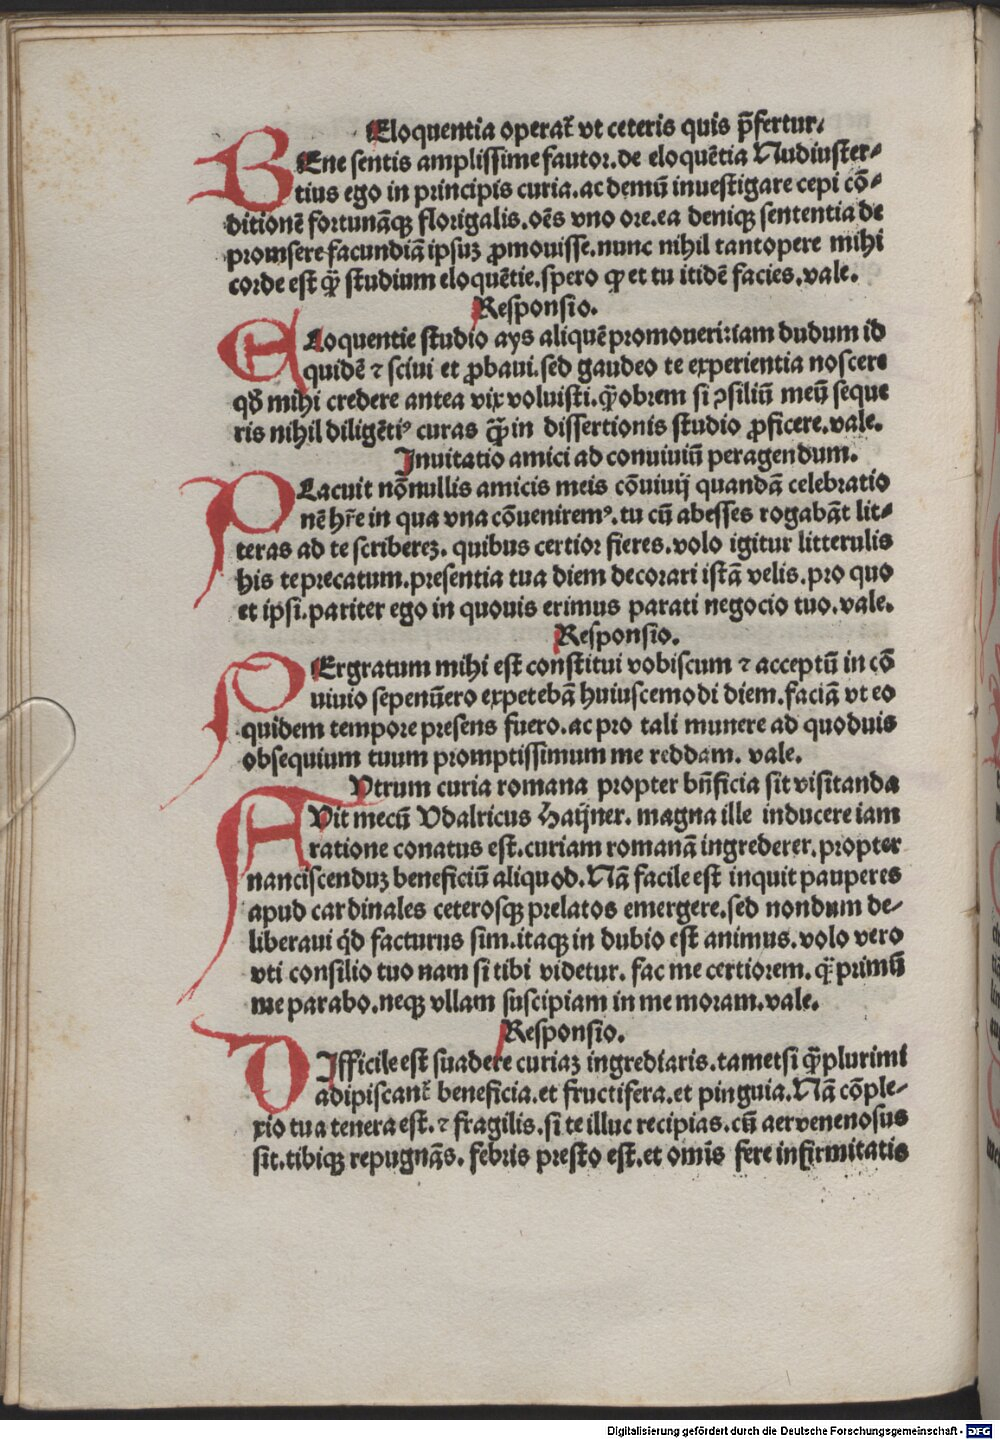 Eloquentia operat᷑ vt ceteris quis p̄fertur.
BEne sentis amplissime fautor. de eloquētia Nudiuster-
tius ego in principis curia. ac demū inuestigare cepi cō-
ditionē fortunāqꝫ florigalis. oēs vno ore. ea deniqꝫ sententia de
promsere facundiā ipsuꝫ ꝓmouisse. nunc nihil tantopere mihi
corde est ꝙ̄ studium eloquētie. spero ꝙ et tu itidē facies. vale.
Responsio.
ELoquentie studio ays aliquē promoueri: iam dudum id
quidē ⁊ sciui et ꝓbaui. sed gaudeo te experientia noscere
qd̄ mihi credere antea vix voluisti. ꝙ̄obrem si ꝯsiliū meū seque
ris nihil diligētiꝰ curas ꝙ̄ in dissertionis studio ꝓficere. vale.
Inuitatio amici ad conuiuiū peragendum.
PLacuit nōnullis amicis meis cōuiuij quandā celebratio
nē hr̄e in qua vna cōueniremꝰ. tu cū abesses rogabāt lit-
teras ad te scribereꝫ. quibus certior fieres. volo igitur litterulis
his te precatum. presentia tua diem decorari istā velis. pro quo
et ipsi. pariter ego in quouis erimus parati negocio tuo. vale.
Responsio.
PErgratum mihi est constitui vobiscum ⁊ acceptū in cō
uiuio sepenūero expetebā huiuscemodi diem. faciā vt eo
quidem tempore presens fuero. ac pro tali munere ad quoduis
obsequium tuum promptissimum me reddam. vale.
Vtrum curia romana propter bn̄ficia sit visitanda
AVit mecū Vdalricus Haijner. magna ille inducere iam
ratione conatus est. curiam romanā ingrederer. propter
nanciscenduꝫ beneficiū aliquod. Nā facile est inquit pauperes
apud cardinales ceterosqꝫ prelatos emergere. sed nondum de-
liberaui qd̄ facturus sim. itaqꝫ in dubio est animus. volo vero
vti consilio tuo nam si tibi videtur. fac me certiorem. ꝙ̄primū
me parabo. neqꝫ vllam suscipiam in me moram. vale.
Responsio.
DIfficile est suadere curiaꝫ ingrediaris. tametsi ꝙ̄plurimi
adipiscant᷑ beneficia. et fructifera. et pinguia. Nā cōple-
xio tua tenera est. ⁊ fragilis. si te illuc recipias. cū aer venenosus
sit. tibiqꝫ repugnās. febris presto est. et omīs fere infirmitatis
Digitalisierung gefördert durch die Deutsche Forschungsgemeinschaft - DFG